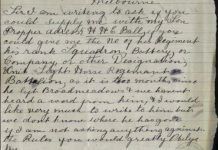 Melbourne
Sir I am writing to ask if you
could supply me with my Son
Propper address H H G Ball if you
could give me the No of his Regiment
his rank Squadron, Battery or
Company or other Designation,
Light Horse Regiment
Battalion, as it is months since
he left Broadmeadows & we havent
heard a word from him, & would
like very much to write to him but
we dont know where he has got to
if I am not asking any thing against
the Rules you would greatly Oblige